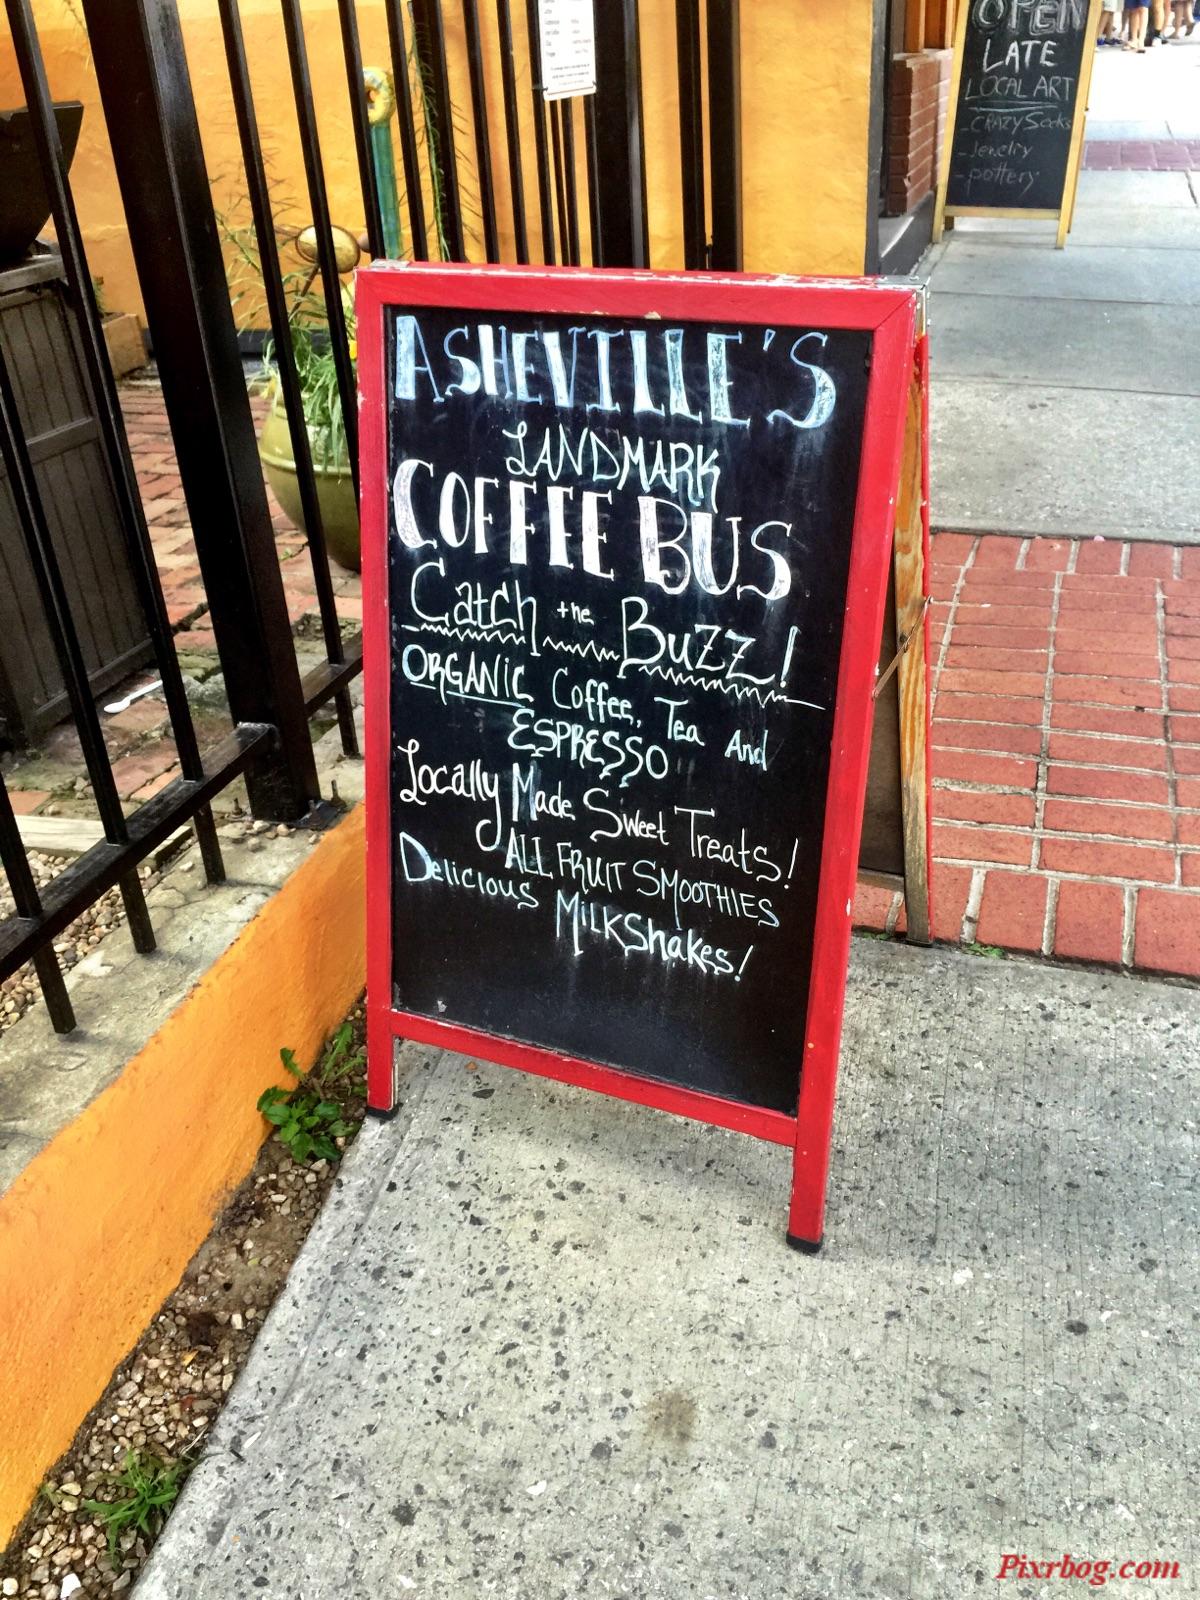 ASHEVILLE'S
LANDMARK
COFFEE BUS
Catch the Buzz!
ORGANIC Coffee, Tea And
ESPRESSO
Locally Made Sweet Treats!
ALL FRUIT SMOOTHIES
Delicious MilkShakes!
OPEN
LATE
LOCAL ART
-CRAZY Socks
-Jewelry
-pottery
Pixrbog.com